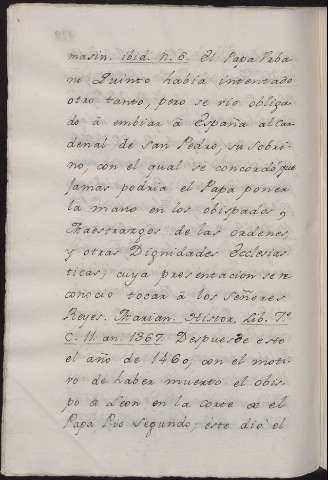 masin. ibid. n. 6. El Papa Urba
no Quinto habia intentado
otro tanto, pero se vio obliga-
do à embiar à España al Car
denal de san Pedro, su sobri-
no, con el qual se concordó, que
jamas podria el Papa poner
la mano en los obispados y
Maestrazgos de las ordenes,
y otras Dignidades Ecclesias
ticas; cuya presentacion se re
conocio tocar à los señores
Reyes. Marian. Histor. Lib. 7.º
C. 11. an. 1367. Despues de esto
el año de 1460, con el moti-
vo de haber muerto el obis-
po de Leon en la corte de el
Papa Pio segundo; éste dió el